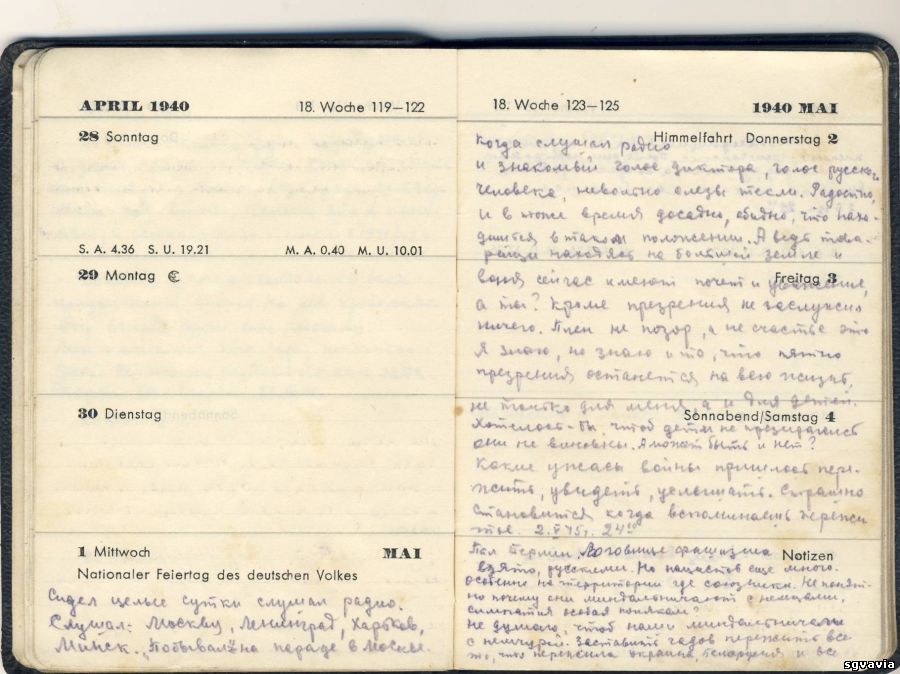 APRIL 1940 18. Woche 119—122
28 Sonntag
S. A. 4.36 S. U. 19.21 M. A. 0.40 M. U. 10.01
29 Montag
30 Dienstag
1 Mittwoch MAI
Nationaler Feiertag des deutschen Volkes
Сидел целые сутки слушал радио.
Слушал: Москву, Ленинград, Харьков,
Минск. „Побывал" на параде в Москве.
18. Woche 123—125 1940 MAI
Himmelfahrt Donnerstag 2
Когда слушал радио
и знакомый голос диктора, голос русского
человека, невольно слезы текли. Радостно,
и в тоже время досадно, обидно, что нахо-
дишся в таком положении. А ведь това-
рищи находятся на большой земле и
Freitag 3
сейчас имеют почет и уважение,
а ты? Кроме презрения не заслужил
ничего. Плен не позор, а не счастье это
я знаю, но знаю и то, что пятно
презрения останется на всю жизнь,
Sonnabend/Samstag 4
не только для меня, а и для детей.
Хотелось-бы, чтоб детей не презирали
они не виновны. А может быть и нет?
Какие ужасы войны пришлось пере-
жить, увидеть, услышать. Страшно
становится когда вспоминаешь пережи
тое. 2.V 45г. 24⁰⁰
Notizen
Пал Берлин. Логовище фашизма
взято, русскими. Но нацистов еще много.
особенно на территории где союзники. Не понят-
но почему они миндальничают с немцами,
симпатия особая
не думаю, чтоб наши миндальничали
с немчурой. Заставить гадов пережить все
то, что пережила Украина, Белорусия и все
sgvavia